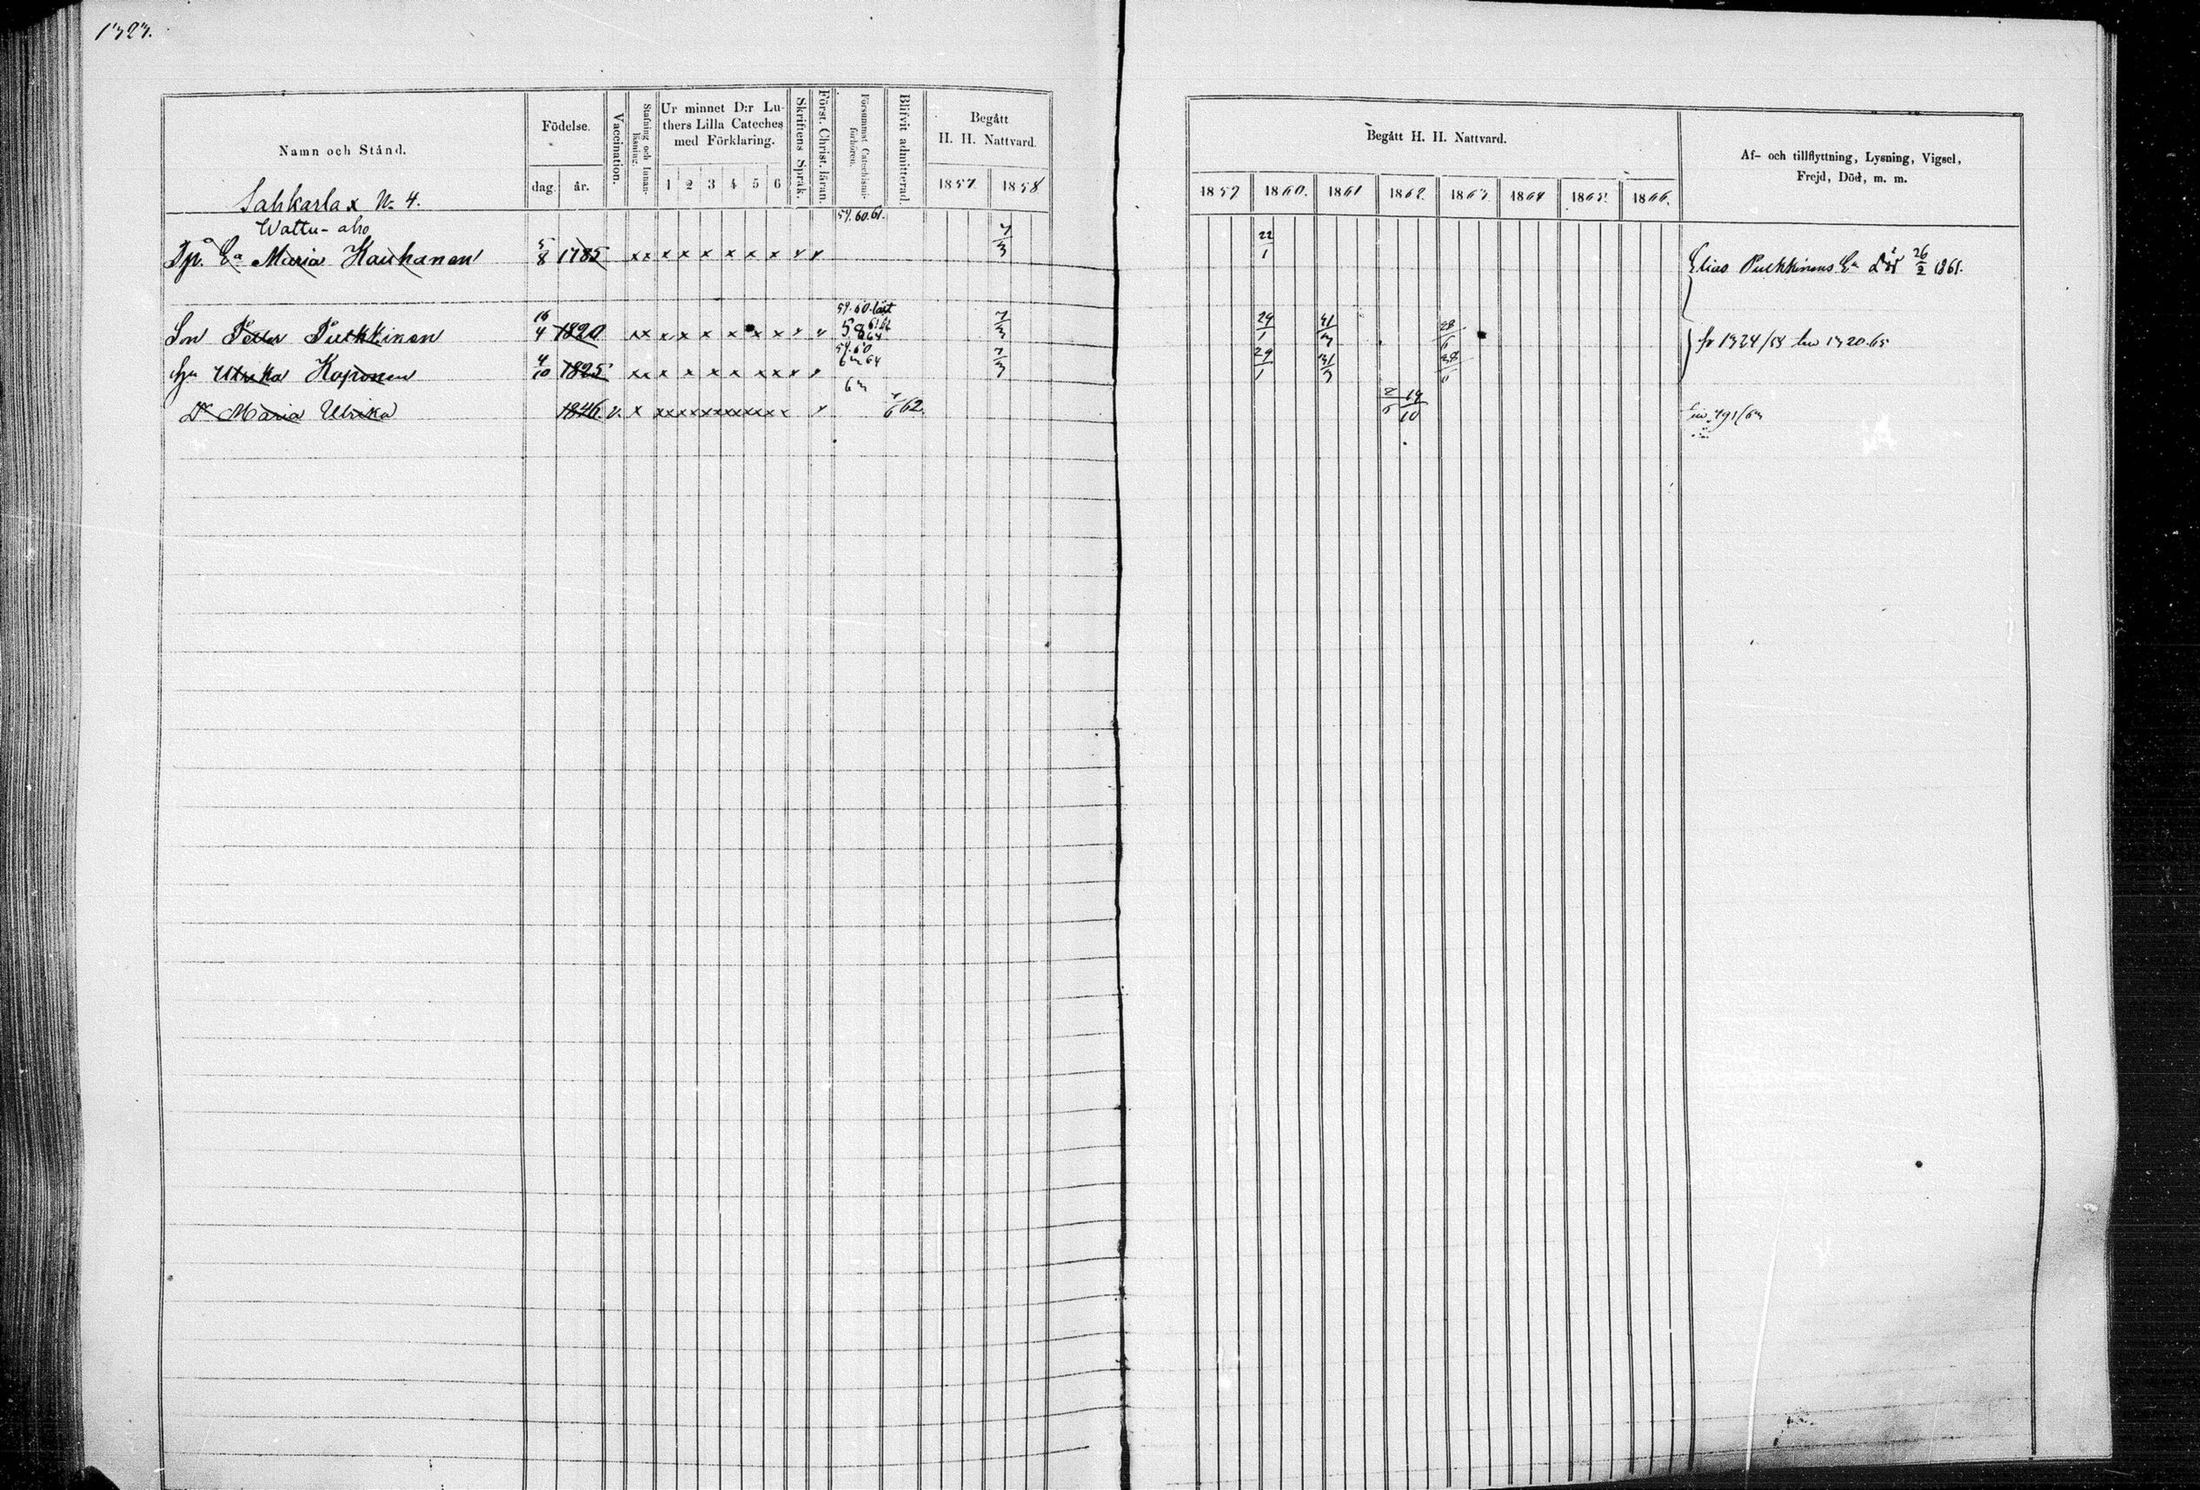 1323.
Namn och Stånd.
Födelse.
dag.
år.
Vaccination.
Stafning och Innanläsning.
Ur minnet D:r Lu-
thers Lilla Cateches
med Förklaring.
1 2 3 4 5 6
Skriftens Språk.
Först. Christ. läran.
Försummat Catechismi-
förhören.
Blifvit admitterad.
Begått
H. H. Nattvard.
1857 1858
Begått H. H. Nattvard.
1859 1860. 1861 1862. 1863. 1864 1865. 1866.
Af- och tillflyttning, Lysning, Vigsel,
Frejd, Död, m. m.
Sahkarlax No 4.
Wattu-aho
59.60.61.
Ea Maria Kauhanen 5/8 1785 xx x x x x x x x x 7/3 22/1 Elias Pulkkinens Ea Död 26/2 1861.
59.60.
Son Petter Pulkkinen 16/4 1820 xx x x x x x x x x 58 64 7/3 29/1 31/3 28/6 fr 1324/58 1320.65
59.60
hu Ulrika Koponen 4/10 1825 xx x x x x x x x x 63 64 7/3 29/1 31/3 28/6
63
Dr Maria Ulrika 1846 v. x xxxxxxxxxxxx x 7/6 62. 19/10 791/63